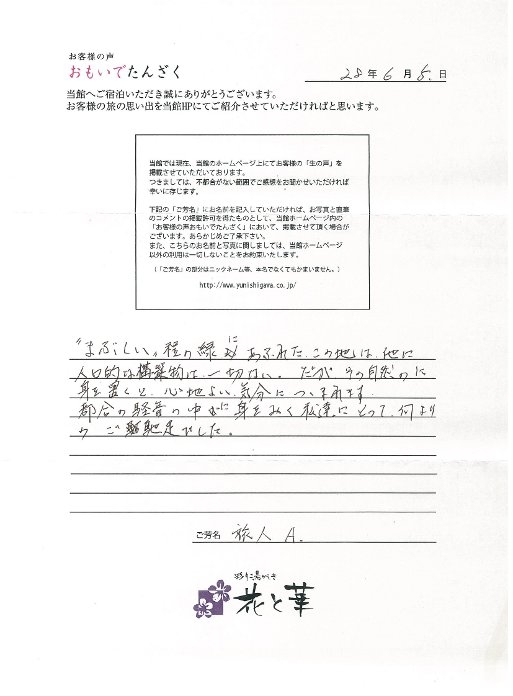 お客様の声
おもいでたんざく
28年 6月 8日
当館へご宿泊いただき誠にありがとうございます。
お客様の旅の思い出を当館HPにてご紹介させていただければと思います。
当館では現在、当館のホームページ上にてお客様の「生の声」を
掲載させていただいております。
つきましては、不都合がない範囲でご感想をお聞かせいただければ
幸いに存じます。
下記の「ご芳名」にお名前を記入していただければ、お写真と直筆
のコメントの掲載許可を得たものとして、当館ホームページ内の
「お客様の声おもいでたんざく」において、掲載させて頂く場合が
ございます。あらかじめご了承下さい。
また、こちらのお名前と写真に関しましては、当館ホームページ
以外の利用は一切しないことをお約束いたします。
(「ご芳名」の部分はニックネーム等、本名でなくてもかまいません。)
http://www.yunishigawa.co.jp/
"まぶしい"程の緑に あふれた この地は、他に
人口的な構築物は、一切ない。だが その自然の に
身を置くと、心地よい気分に つつまれます。
都合の 中に 身をおく私達にとって、何より
も ご馳走でした。
ご芳名 旅人 A.
花と華